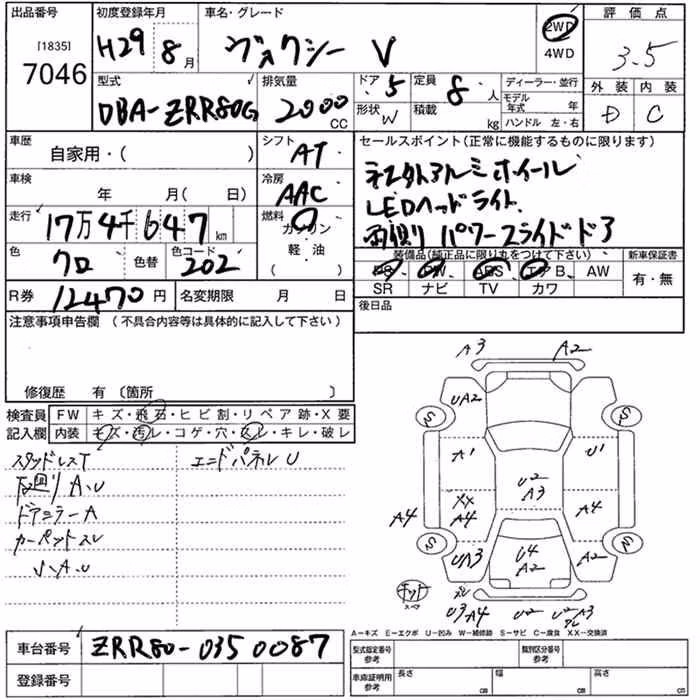 出品番号 初度登録年月 車名・グレード 評価点
[1835]
7046
H29 8月 ヴォクシー V
2WD
4WD
3.5
型式 排気量 ドア 定員 ディーラー・並行 外装 内装
DBA-ZRR80G 2000CC 5 8人
モデル年式 年 D C
形状 W 積載 kg ハンドル 左・右
車歴 シフト セールスポイント(正常に機能するものに限ります)
自家用・( ) AT
社外アルミホイール
車検 冷房
年 月( 日) AAC
LEDヘッドライト
走行 燃料
17万4千647km ガソリン
両側パワースライドドア
軽・油
( )
色 色替 色コード
クロ 202
装備品(純正品に限り丸をつけて下さい) 新車保証書
PS PW ABS エアB AW 有・無
SR ナビ TV カワ
R券 12470円 名変期限 月 日
後日品
注意事項申告欄(不具合内容等は具体的に記入して下さい)
修復歴 有〔箇所 〕
検査員 FW キズ・飛石・ヒビ割・リペア跡・X要
記入欄 内装 キズ・汚レ・コゲ・穴・スレ・キレ・破レ
スタッドレスT エンドパネルU
下廻りA、U
ドアミラーA
カーペットスレ
V、A、U
A3 A2
UA2
S S
A1 U1
U2
A3
XX
A4 A4 A4
S S
UA3 U4 A2
A2
キット
スペア
U3 A4 U2 U2 A3
A−キズ E−エクボ U−凹み W−補修跡 S−サビ C−腐食 XX−交換済
車台番号 ZRR80-0350087
型式指定番号 参考 類別区分番号 参考
登録番号
車庫証明用 参考 長さ cm 幅 cm 高さ cm